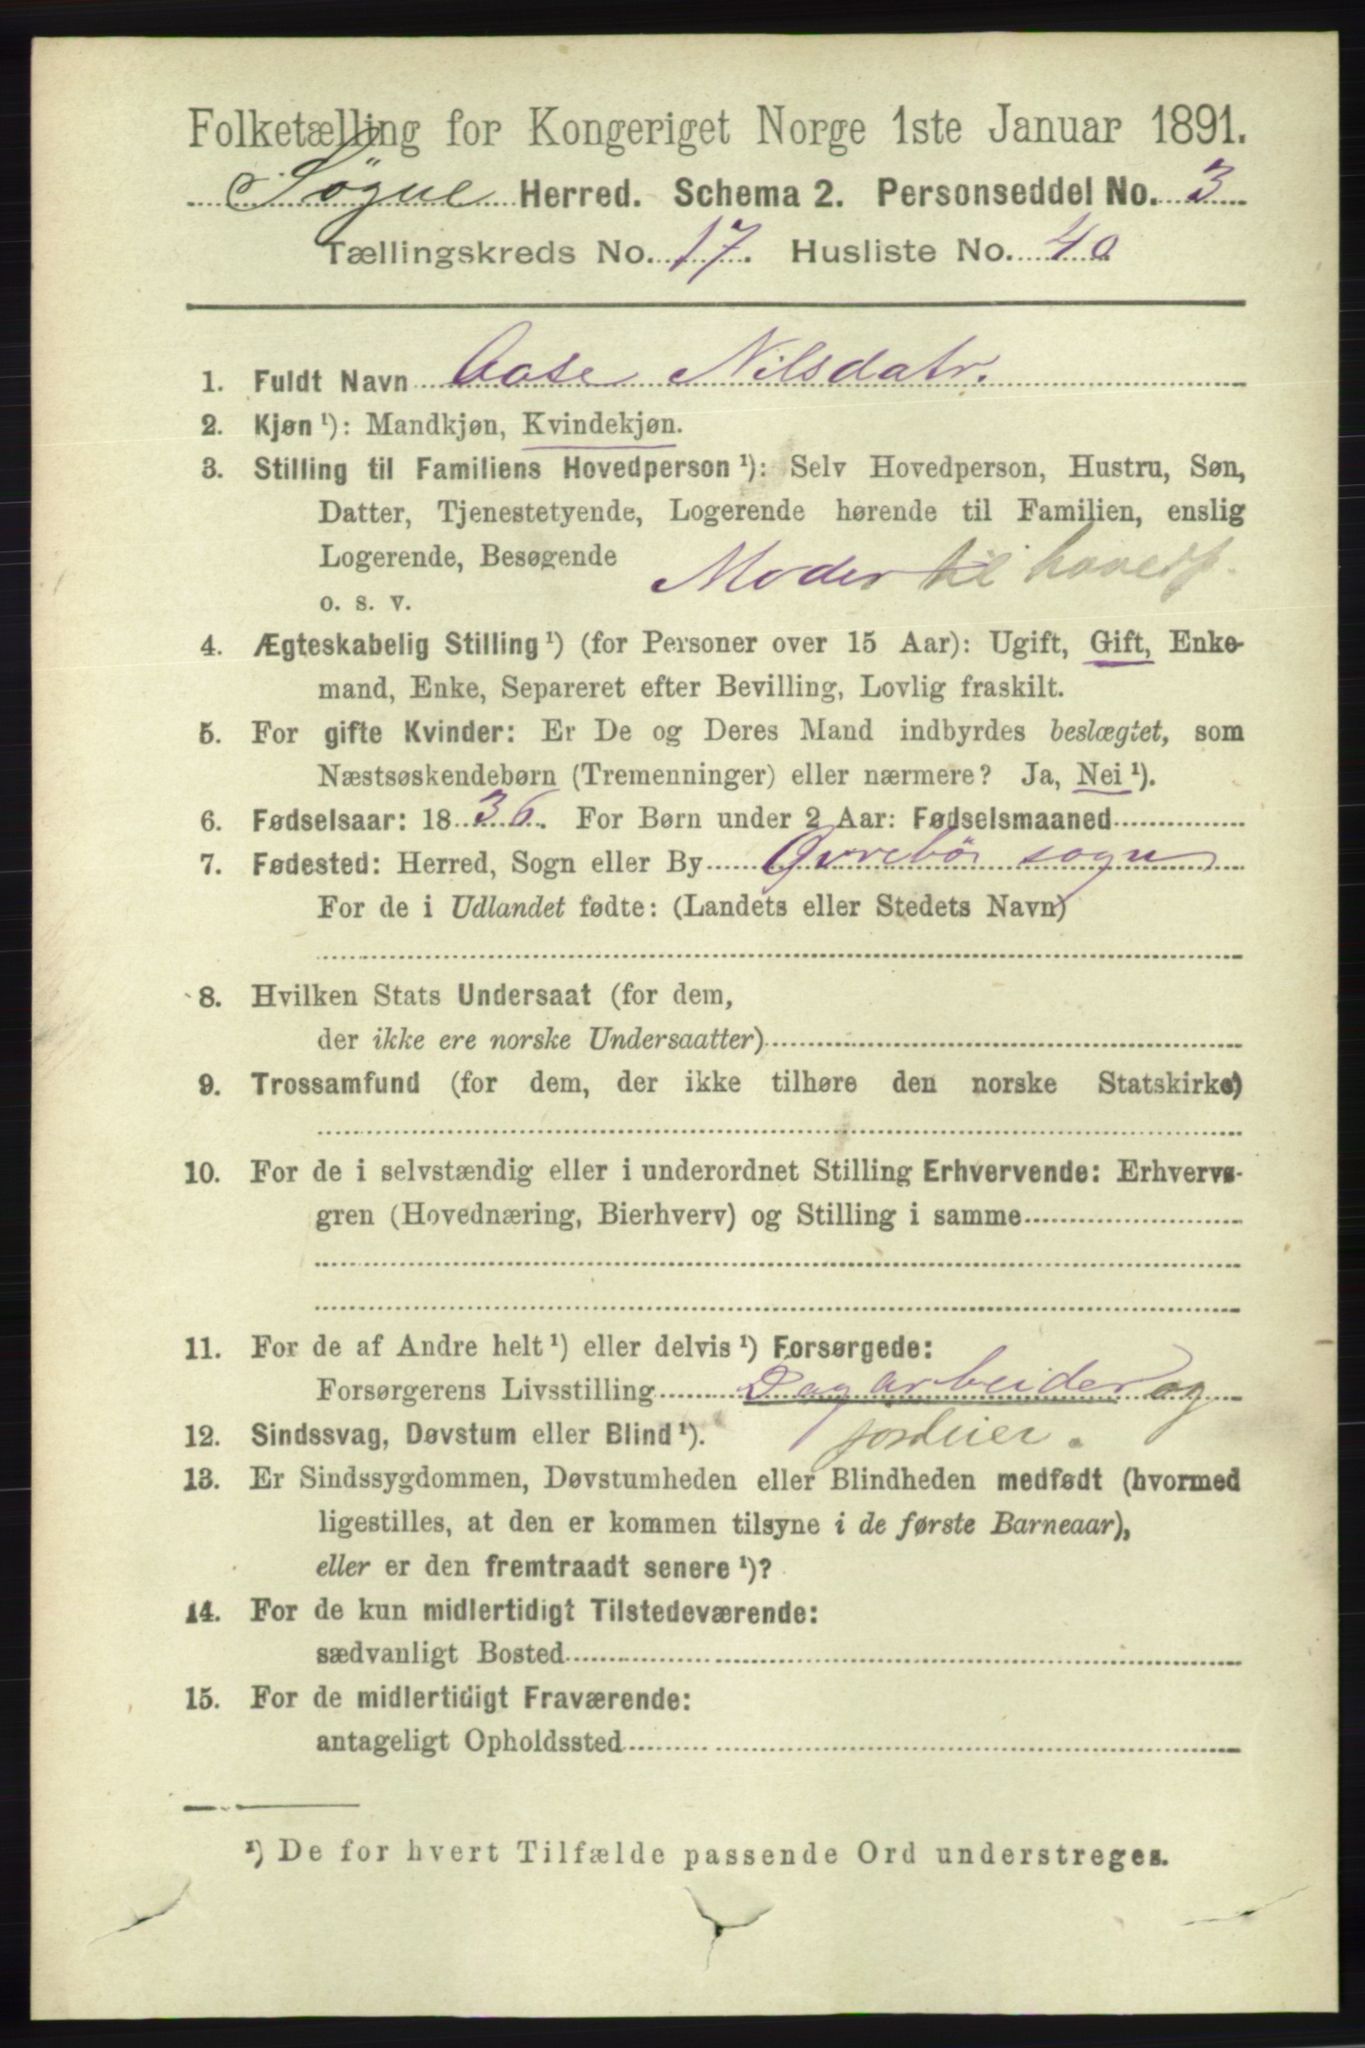 Folketælling for Kongeriget Norge 1ste Januar 1891.
Søgne Herred. Schema 2. Personseddel No. 3
Tællingskreds No. 17. Husliste No. 40
1. Fuldt Navn Aase Nilsdatr.
2. Kjøn ¹): Mandkjøn, Kvindekjøn.
3. Stilling til Familiens Hovedperson ¹): Selv Hovedperson, Hustru, Søn,
Datter, Tjenestetyende, Logerende hørende til Familien, enslig
Logerende, Besøgende
o. s. v. Moder til hovedp.
4. Ægteskabelig Stilling ¹) (for Personer over 15 Aar): Ugift, Gift, Enke-
mand, Enke, Separeret efter Bevilling, Lovlig fraskilt.
5. For gifte Kvinder: Er De og Deres Mand indbyrdes beslægtet, som
Næstsøskendebørn (Tremenninger) eller nærmere? Ja, Nei ¹).
6. Fødselsaar: 1836. For Børn under 2 Aar: Fødselsmaaned
7. Fødested: Herred, Sogn eller By Øvrebø sogn
For de i Udlandet fødte: (Landets eller Stedets Navn)
8. Hvilken Stats Undersaat (for dem,
der ikke ere norske Undersaatter)
9. Trossamfund (for dem, der ikke tilhøre den norske Statskirke)
10. For de i selvstændig eller i underordnet Stilling Erhvervende: Erhvervs-
gren (Hovednæring, Bierhverv) og Stilling i samme
11. For de af Andre helt ¹) eller delvis ¹) Forsørgede:
Forsørgerens Livsstilling Dagarbeider og
jordeier.
12. Sindssvag, Døvstum eller Blind ¹).
13. Er Sindssygdommen, Døvstumheden eller Blindheden medfødt (hvormed
ligestilles, at den er kommen tilsyne i de første Barneaar),
eller er den fremtraadt senere ¹)?
14. For de kun midlertidigt Tilstedeværende:
sædvanligt Bosted
15. For de midlertidigt Fraværende:
antageligt Opholdssted
¹) De for hvert Tilfælde passende Ord understreges.